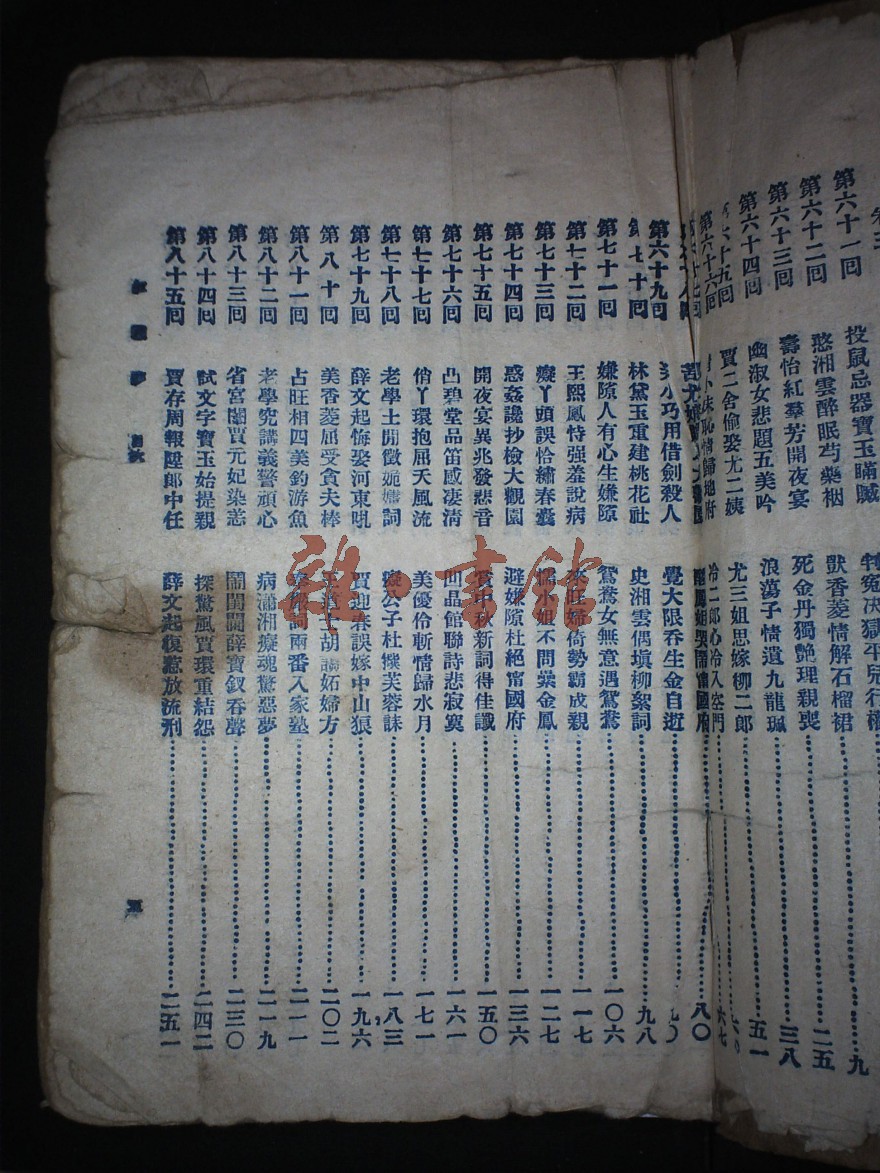 第六十一回 投鼠忌器寶玉瞞贓 判冤决獄平兒行權 九
第六十二回 憨湘雲醉眠芍藥裀 獃香菱情解石榴裙 二五
第六十三回 壽怡紅羣芳開夜宴 死金丹獨艷理親喪 三八
第六十四回 幽淑女悲題五美吟 浪蕩子情遺九龍珮 五一
十五回 賈二舍偷娶尤二姨 尤三姐思嫁柳二郎
第六十六回 小妹恥情歸地府 冷二郎心冷入空門 六七
八〇
第六十九回 小巧用借劍殺人 覺大限吞生金自逝 九〇
第七十回 林黛玉重建桃花社 史湘雲偶塡柳絮詞 九八
第七十一回 嫌隙人有心生嫌隙 鴛鴦女無意遇鴛鴦 一〇六
第七十二回 王熙鳳恃强羞說病 來旺婦倚勢霸成親 一一七
第七十三回 癡丫頭誤拾繡春囊 懦小姐不問纍金鳳 一二七
第七十四回 惑姦讒抄檢大觀園 避嫌隙杜絕甯國府 一三六
第七十五回 開夜宴異兆發悲音 賞中秋新詞得佳讖 一五〇
第七十六回 凸碧堂品笛感凄清 凹晶館聯詩悲寂寞 一六一
第七十七回 俏丫環抱屈夭風流 美優伶斬情歸水月 一七一
第七十八回 老學士閒徵姽嫿詞 癡公子杜撰芙蓉誄 一八三
第七十九回 薛文起悔娶河東吼 賈迎春誤嫁中山狼 一九六
第八十回 美香菱屈受貪夫棒 王道士胡謅妬婦方 二〇二
第八十一回 占旺相四美釣游魚 奉嚴詞兩番入家塾 二一一
第八十二回 老學究講義警頑心 病瀟湘癡魂驚惡夢 二一九
第八十三回 省宮闈賈元妃染恙 鬧閨閫薛寶釵吞聲 二三〇
第八十四回 試文字寶玉始提親 探驚風賈環重結怨 二四二
第八十五回 賈存周報陞郎中任 薛文起復惹放流刑 二五一
紅樓夢 目次 五
雜·書館